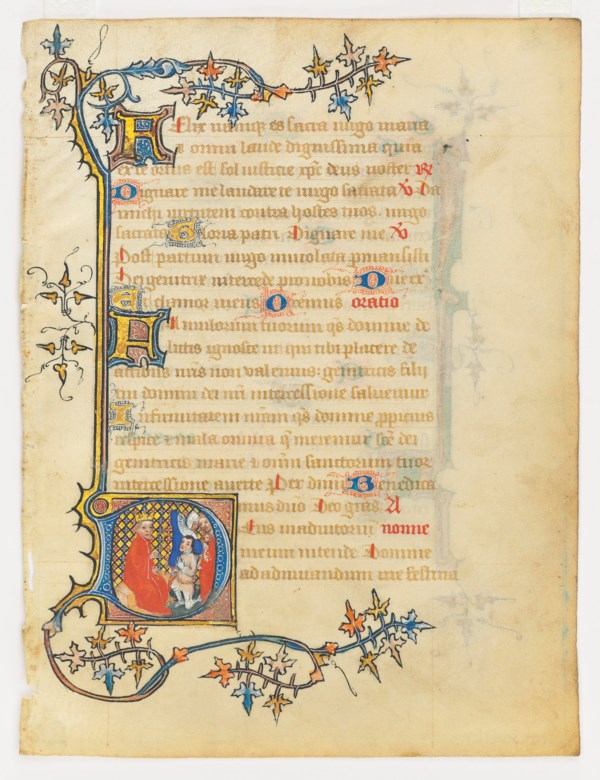 Felix namq; es sacra uirgo maria
omni laude dignissima quia
ex te ortus est sol iusticie xpc deus noster R
Dignare me laudare te uirgo sacrata V Da
michi uirtutem contra hostes tuos. uirgo
sacrata Gloria patri Dignare me V
Post partum uirgo inuiolata pmansisti
Dei genitrix intercede pro nobis Domine ex
Et clamor meus Oremus oratio
Famulorum tuorum qs domine de
lictis ignosce ut qui tibi placere de
actibus nris non valemus: genitricis filii
tui domini dei nri intercessione saluemur
Infirmitatem nram qs domine ppicius
respice et mala omnia q meremur sce dei
genitricis marie et omniu sanctorum tuor
intercessione auerte Per dnm Benedica
mus dno Deo gras A
Deus in adiutoriu nonne
meum intende Domine
ad adiuuandum me festina